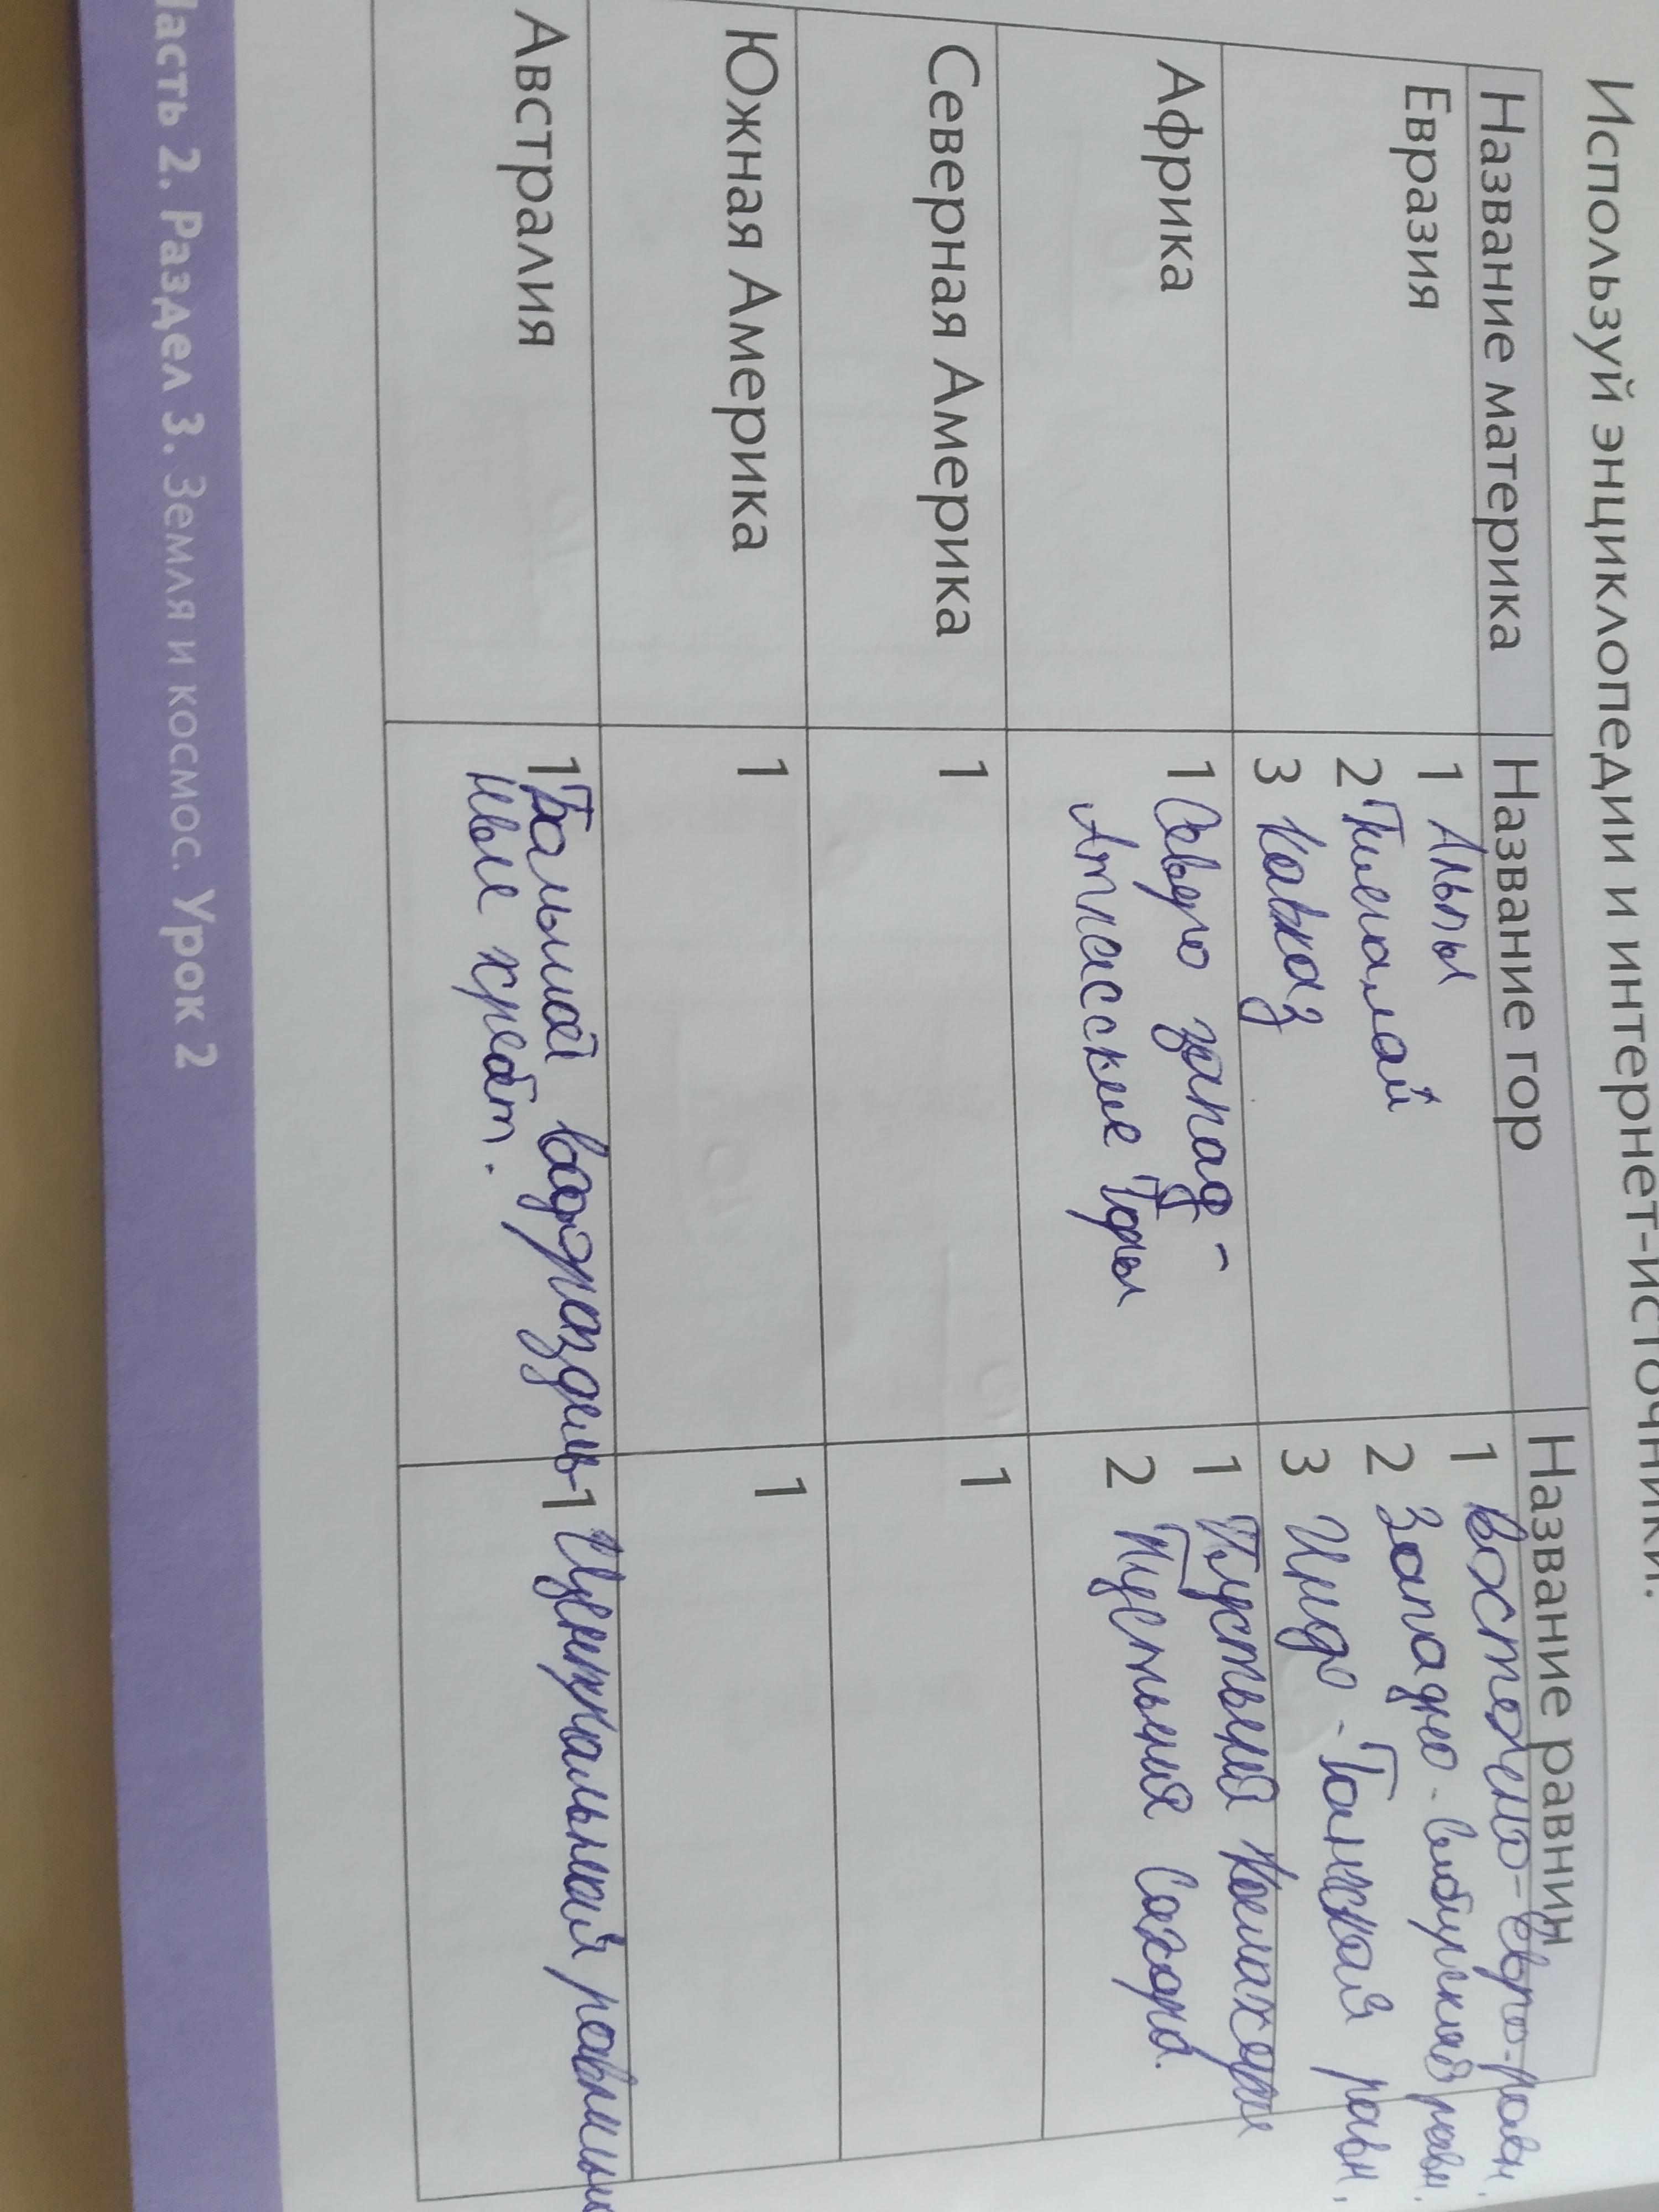 Используй энциклопедии и интернет-источники.
Название материка Название гор Название равнин
Евразия
1 Альпы
2 Гималай
3 Кавказ
1 Восточно-евро-равн.
2 Западно-сибирская равн.
3 Индо-Гангская равн.
Африка
1 Северо запад-
Атласские Горы
1 Пустыня Калахари
2 Пустыня Сахара.
Северная Америка 1 1
Южная Америка 1 1
Австралия
1 Большой водораздель-
ный хребт.
1 Центральная равнина
Часть 2. Раздел 3. Земля и космос. Урок 2